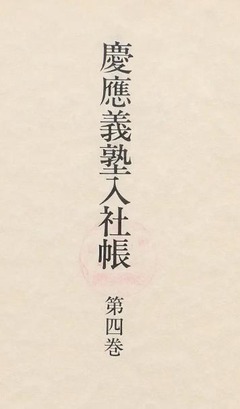 慶應義塾入社帳
第四巻